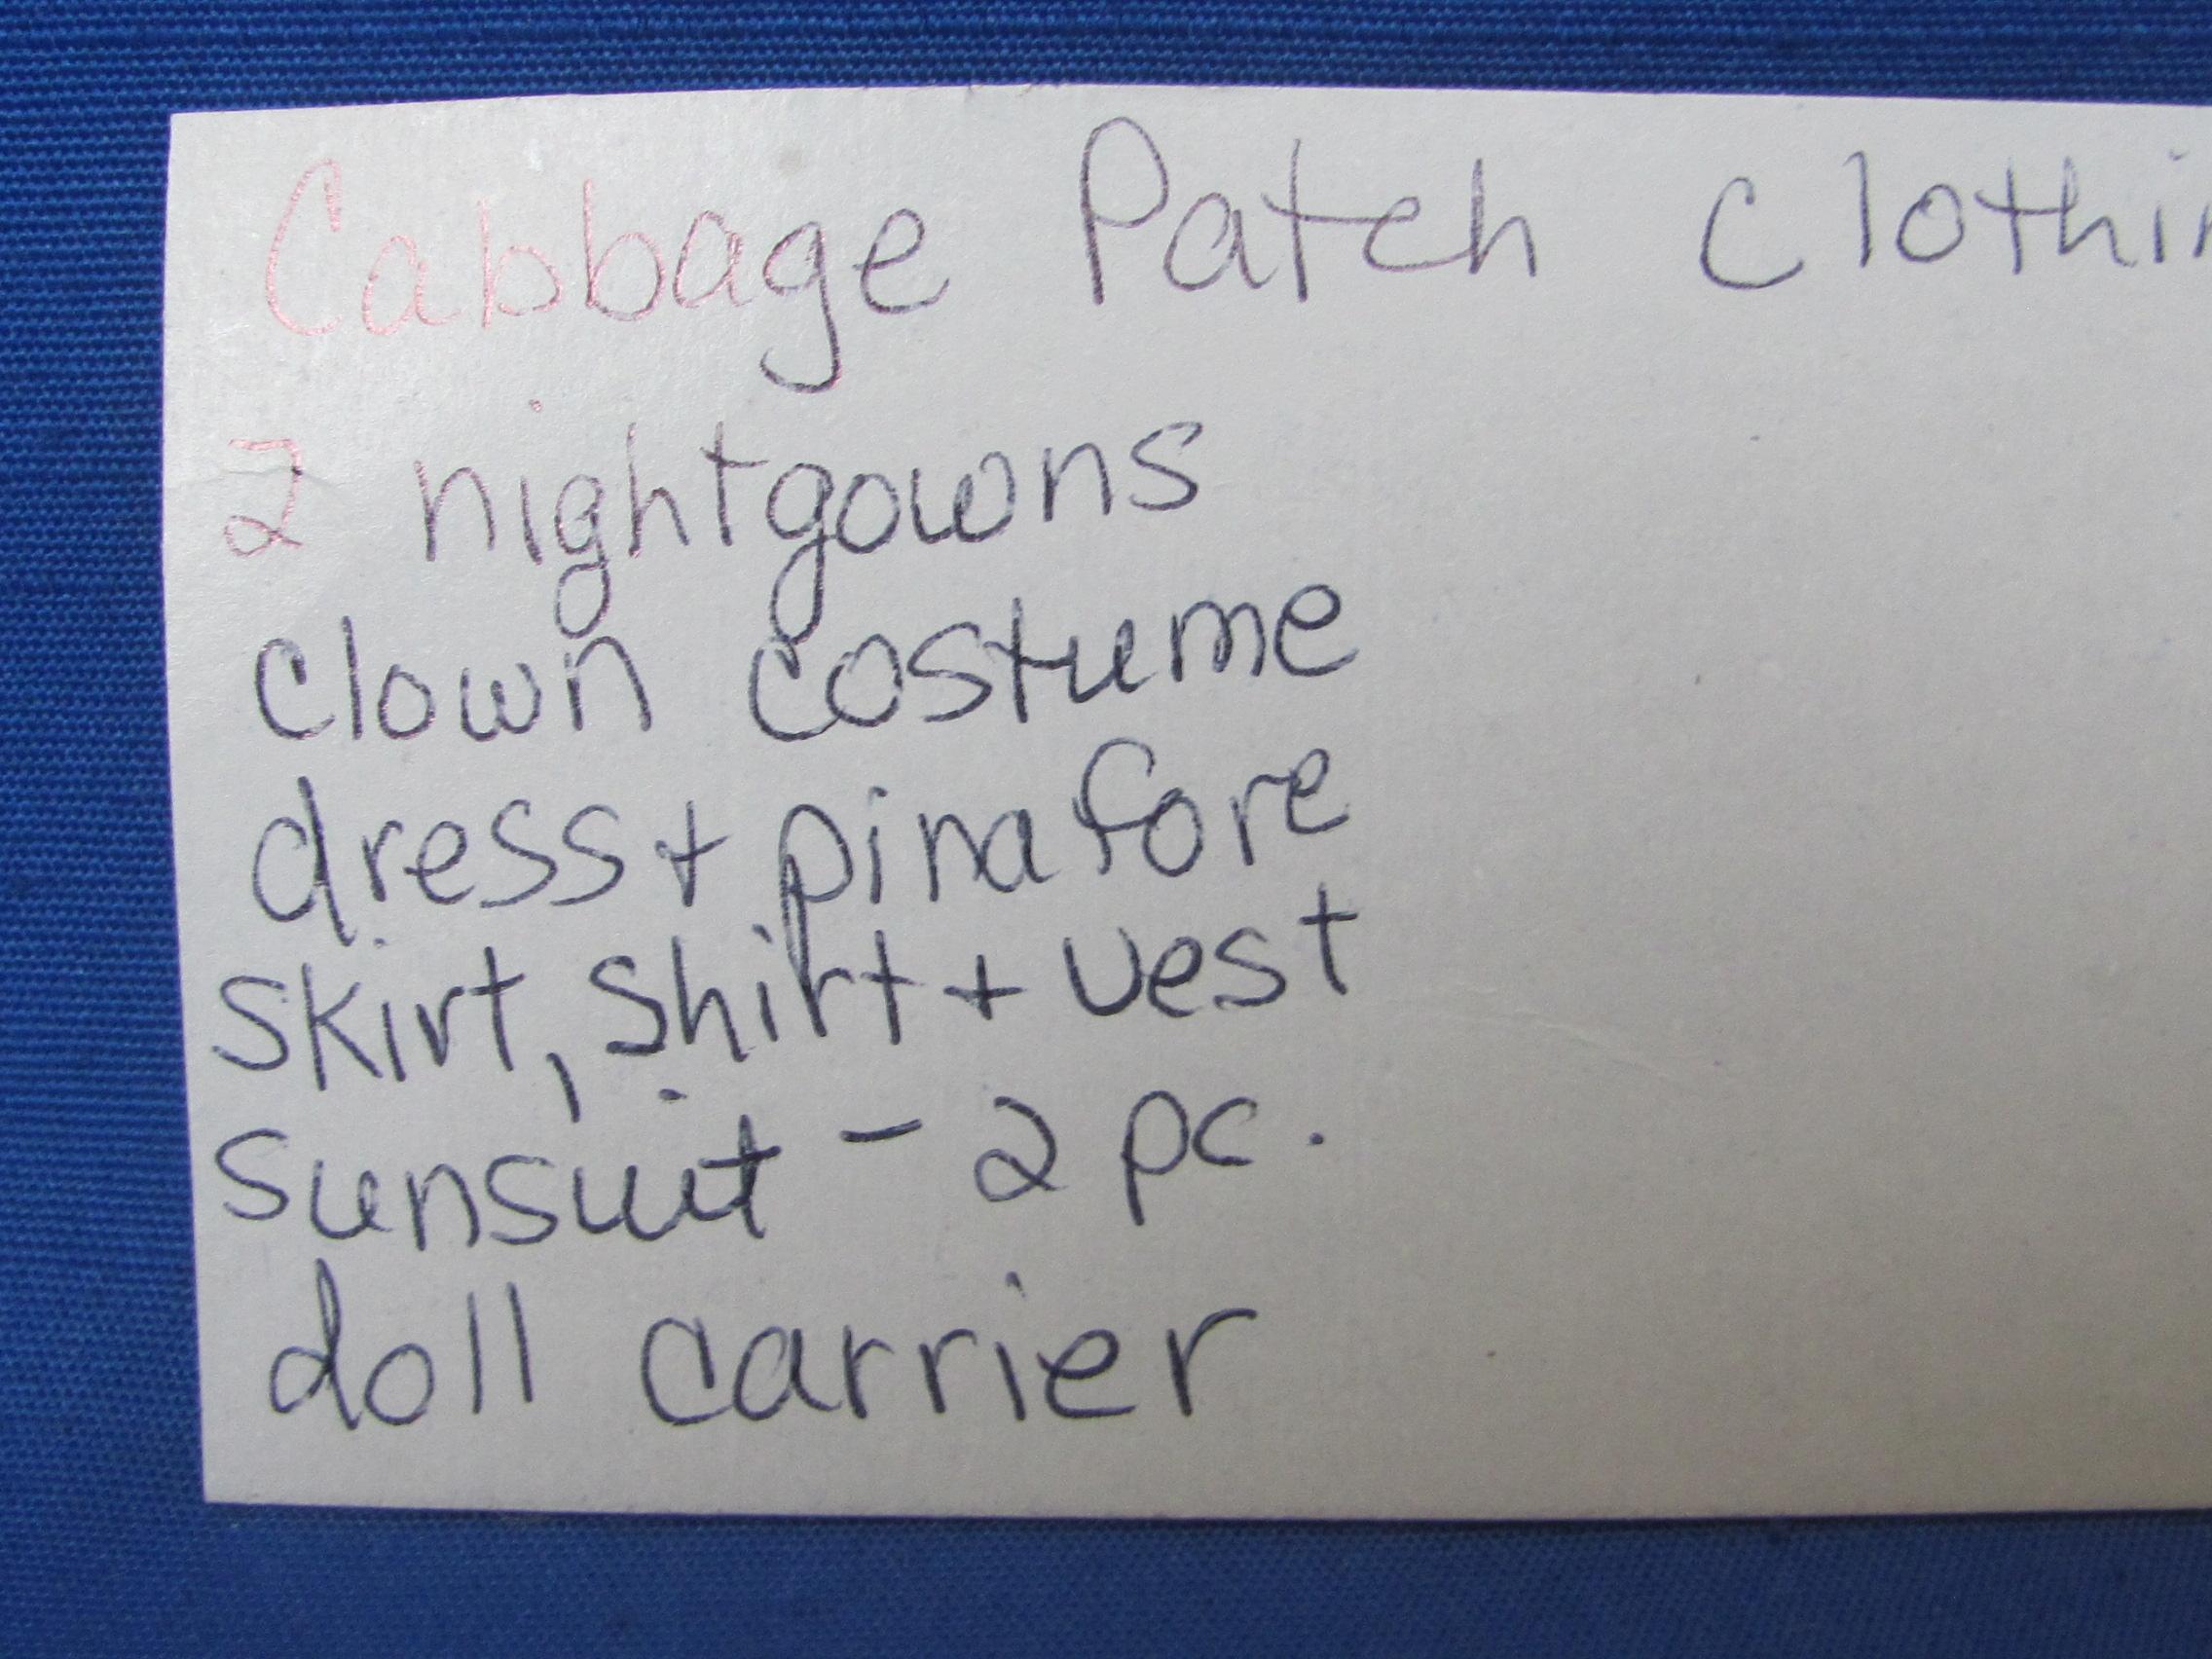 Cabbage Patch Clothin
2 nightgowns
clown costume
dress + pinafore
skirt, shirt + vest
sunsuit - 2 pc.
doll carrier